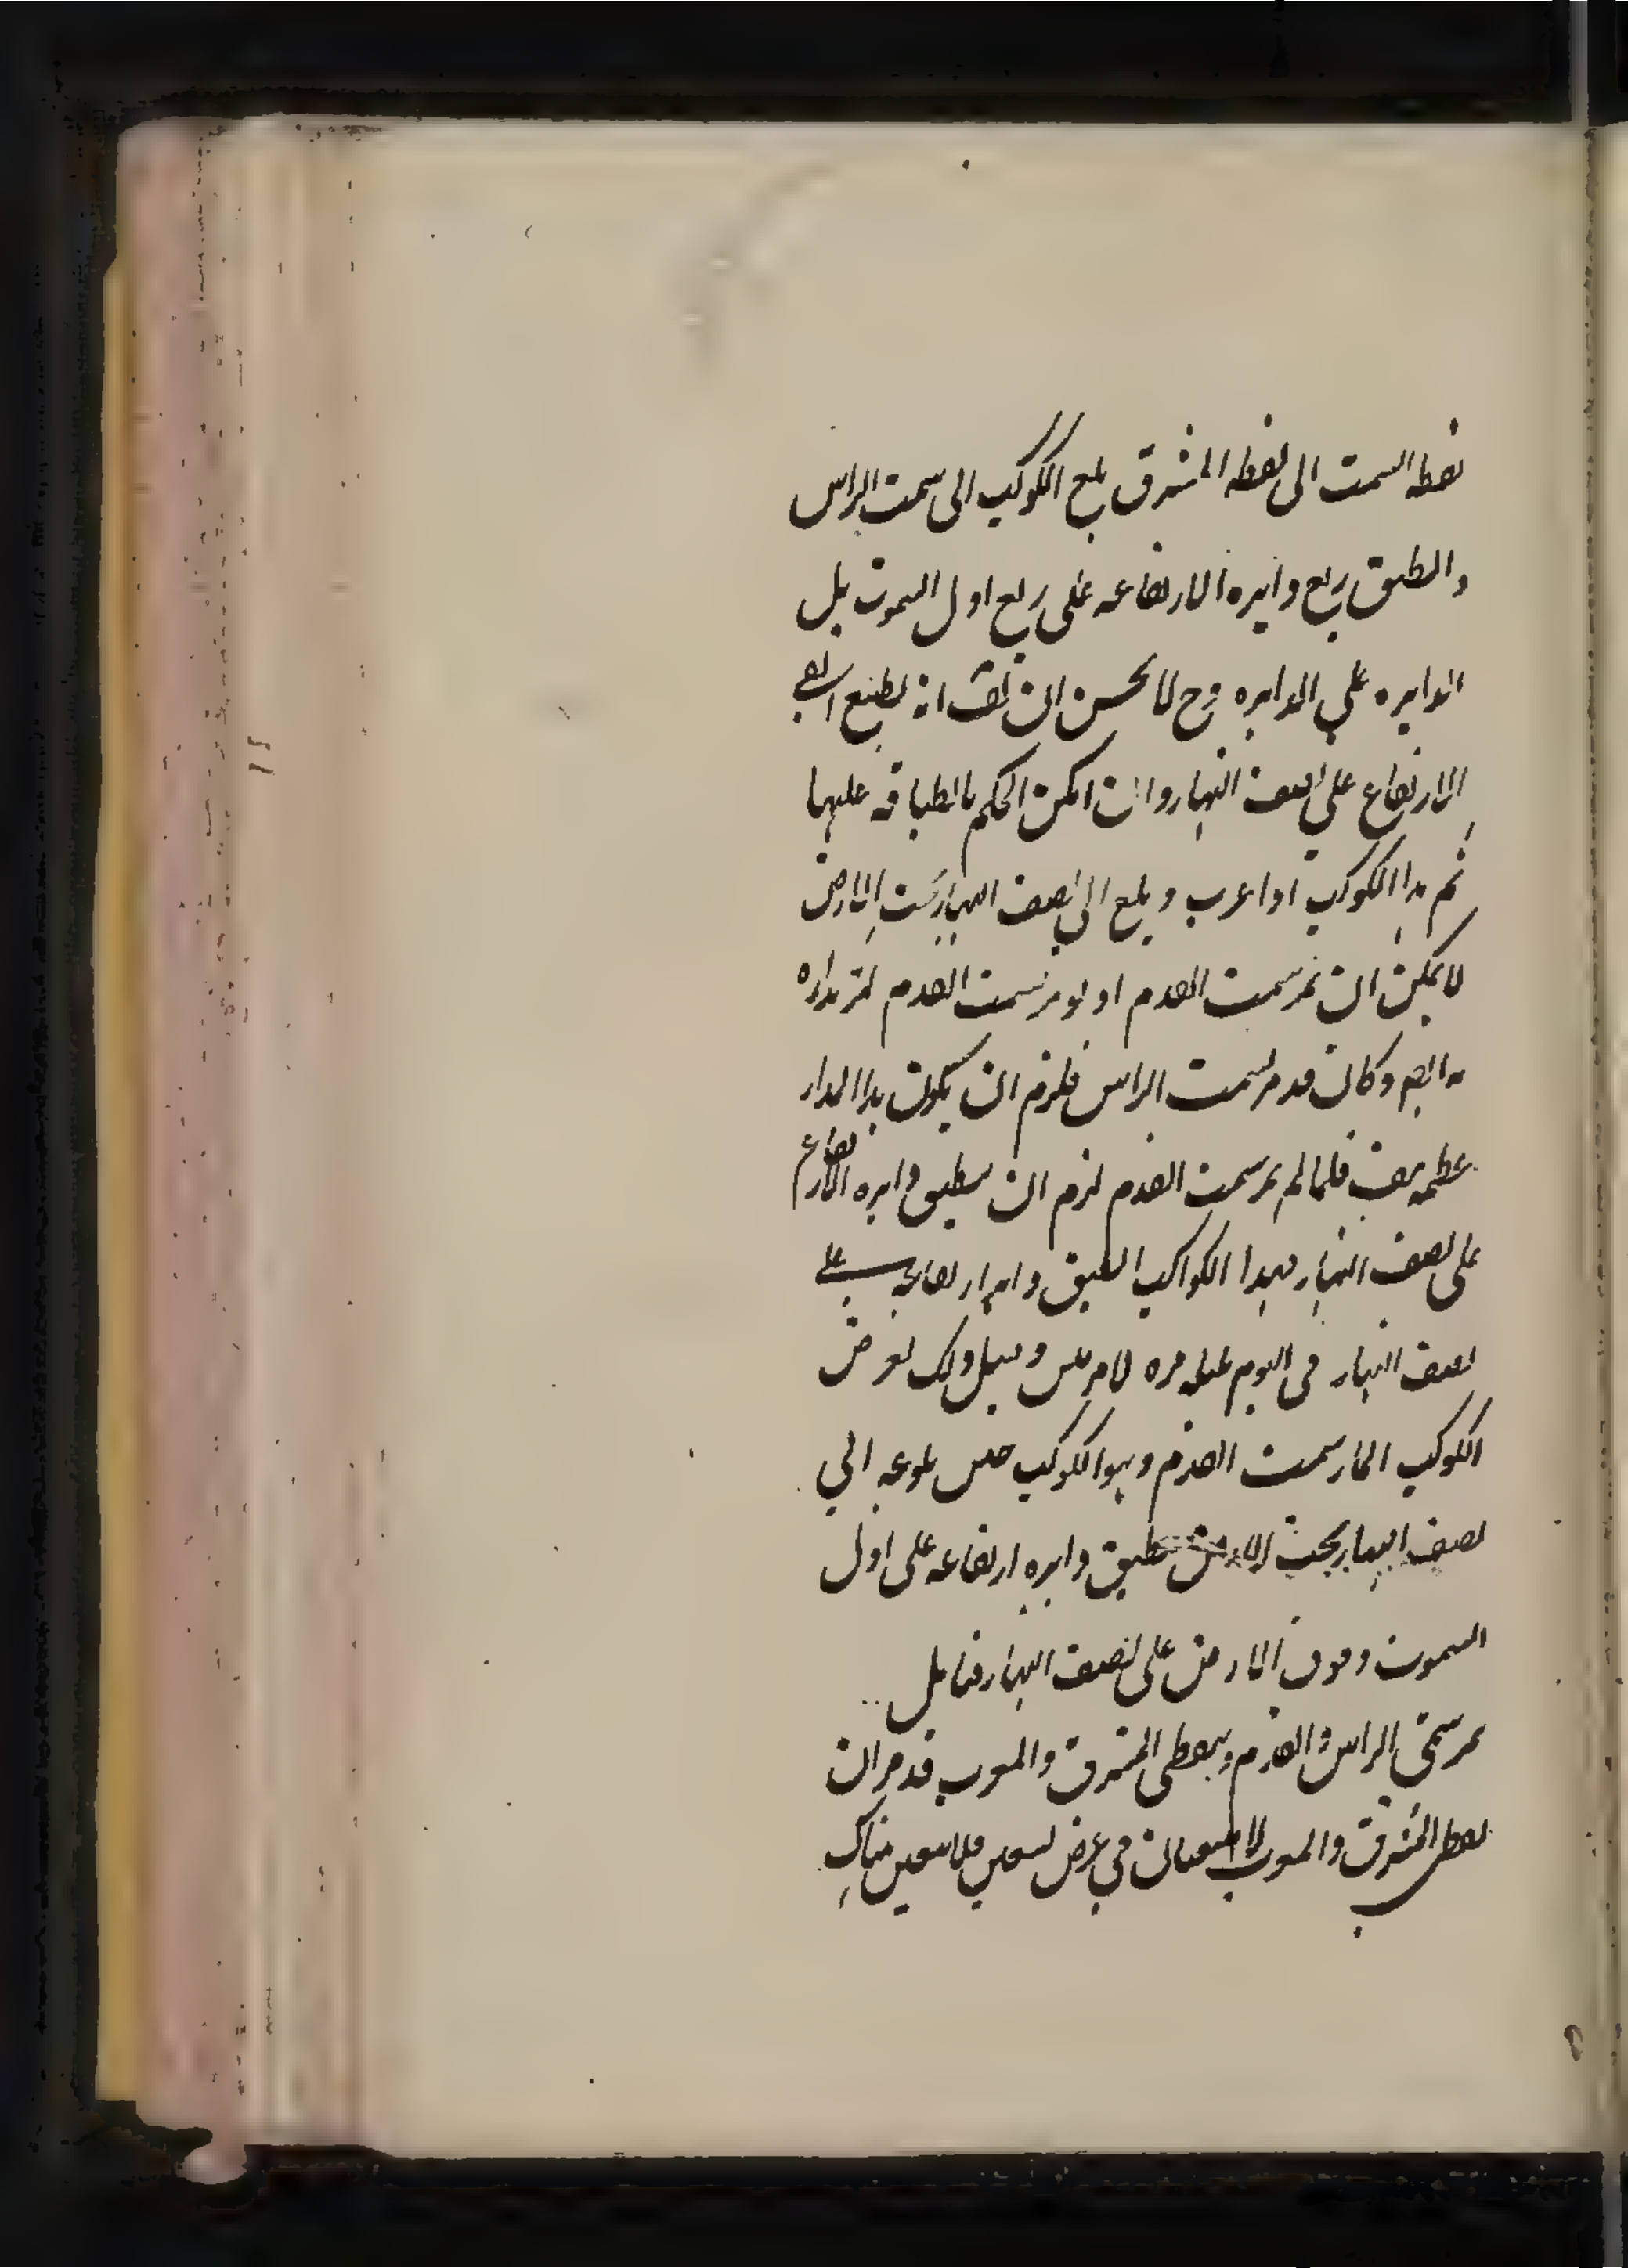 نقطة السمت الى نقطه المشرق بلغ الكوكب الى سمت الراس
وانطبق ربع دايره الارتفاعه على ربع اول السموت بل
الدايره على الدايره وح لا يحسن ان يق انه يطبق
الارتفاع على نصف النهار وان امكن الحكم بانطباقه عليها
ثم هذا الكوكب اذا غرب وبلغ الى نصف النهار تحت الارض
لا يمكن ان يمر بسمت القدم اذ لو مر بسمت القدم لمر مداره
به ايضا وكان قد مر بسمت الراس فلزم ان يكون هذا المدار
عظيمه هف فلما لم يمر بسمت القدم لزم ان ينطبق دايره الارتفاع
على نصف النهار فهذا الكواكب انطبق دايره ارتفاعه على
نصف النهار في اليوم بليله مره لا مرتين وقبل ذلك يعرض
الكوكب المار بسمت القدم وهو الكوكب حين بلوغه الى
نصف النهار تحت الارض ينطبق دايره ارتفاعه على اول
السموت وفوق الارض على نصف النهار فتامل
يمر بسمتي الراس والقدم وبنقطتي المشرق والمغرب قد مر ان
نقطتي المشرق والمغرب لا يتعينان في عرض تسعين فلا يتعين هناك